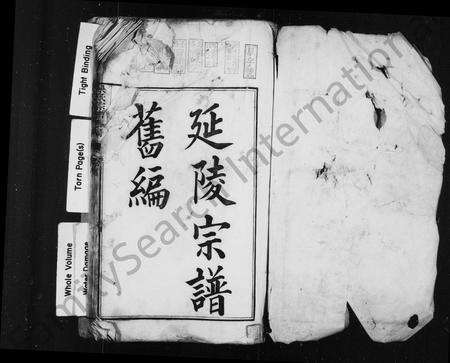 延陵宗譜
舊編
Tight Binding
Torn Page(s)
Whole Volume
Water Damage